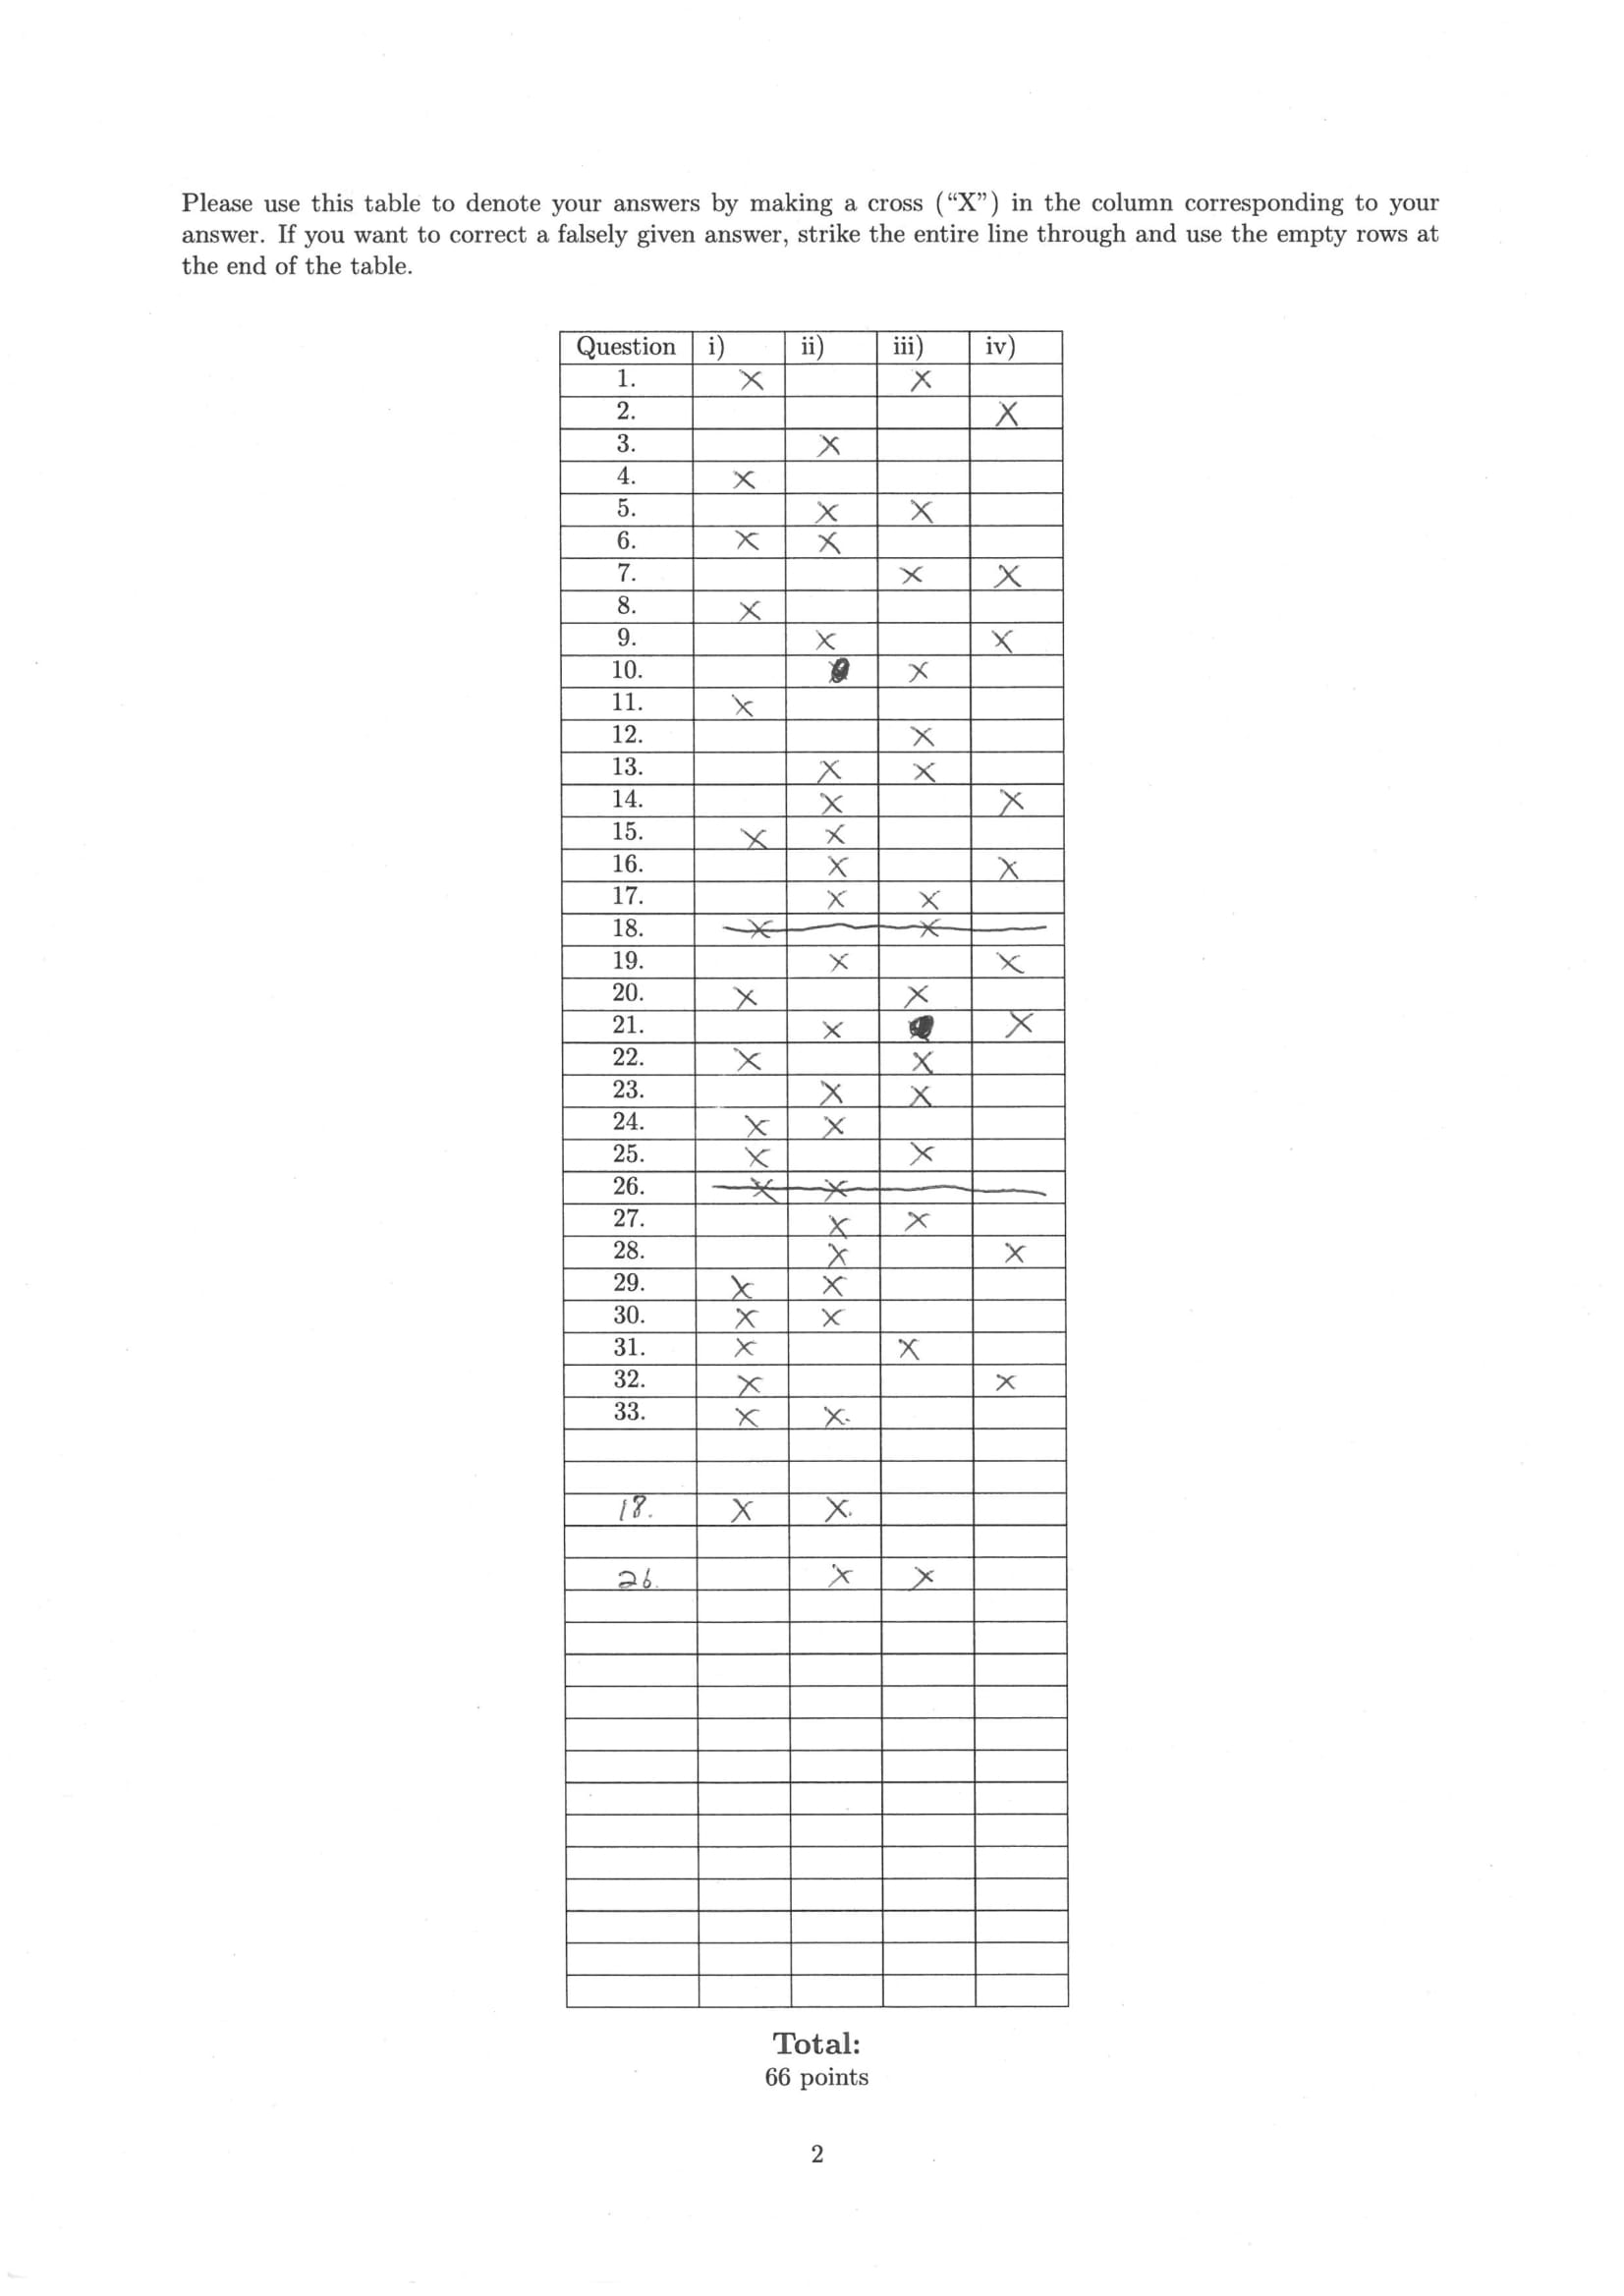 Please use this table to denote your answers by making a cross (“X”) in the column corresponding to your
answer. If you want to correct a falsely given answer, strike the entire line through and use the empty rows at
the end of the table.
Question i) ii) iii) iv)
1. X X
2. X
3. X
4. X
5. X X
6. X X
7. X X
8. X
9. X X
10. X
11. X
12. X
13. X X
14. X X
15. X X
16. X X
17. X X
18. X X
19. X X
20. X X
21. X X
22. X X
23. X X
24. X X
25. X X
26. X X
27. X X
28. X X
29. X X
30. X X
31. X X
32. X X
33. X X.
18. X X.
26. X X
Total:
66 points
2